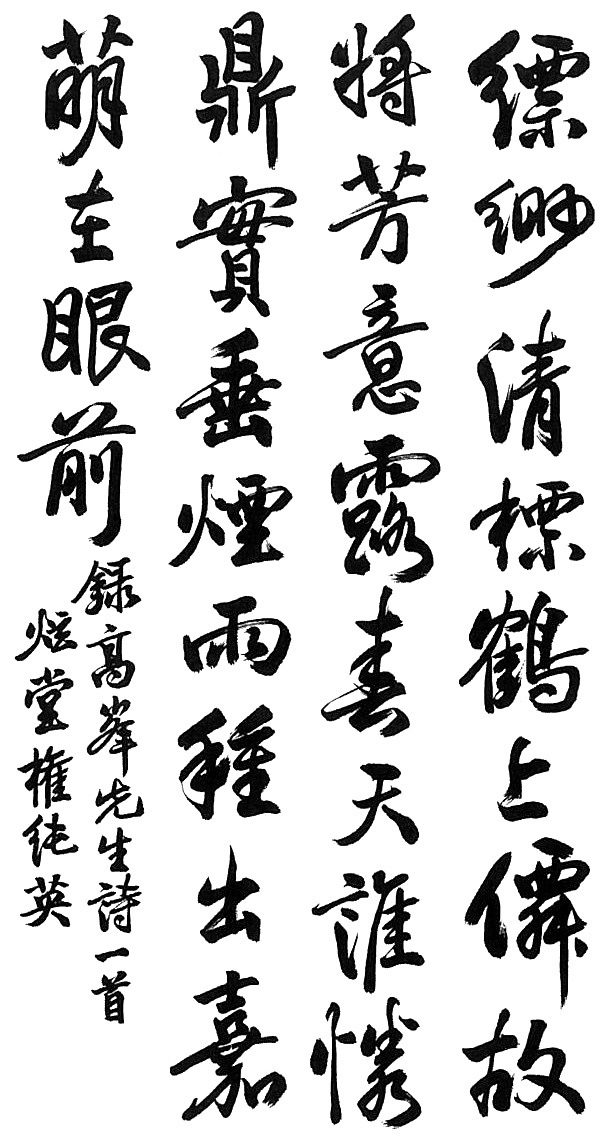 縹緲清標鶴上僊故
將芳意露春天誰憐
鼎實垂煙雨種出嘉
萌在眼前
錄高峯先生詩一首
炫堂權純英